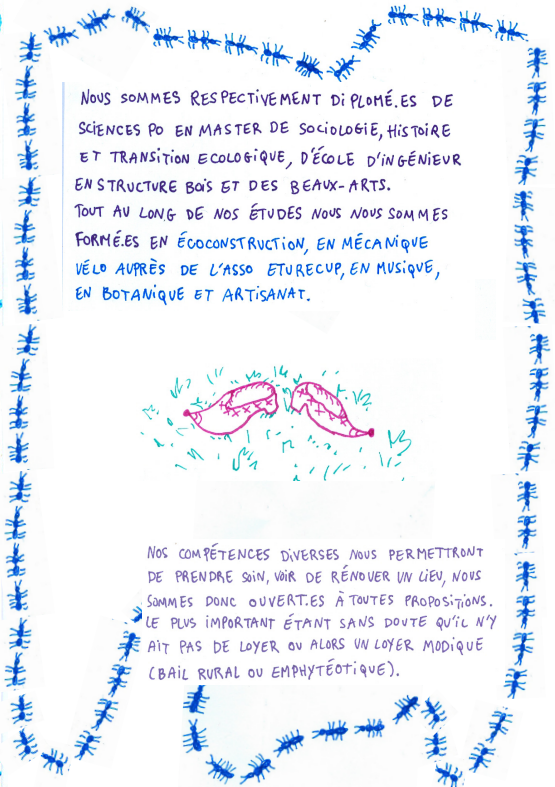 NOUS SOMMES RESPECTIVEMENT DIPLOMÉ.ES DE
SCIENCES PO EN MASTER DE SOCIOLOGIE, HISTOIRE
ET TRANSITION ECOLOGIQUE, D'ÉCOLE D'INGÉNIEUR
EN STRUCTURE BOIS ET DES BEAUX-ARTS.
TOUT AU LONG DE NOS ÉTUDES NOUS NOUS SOMMES
FORMÉ.ES EN ÉCOCONSTRUCTION, EN MÉCANIQUE
VÉLO AUPRÈS DE L'ASSO ETURECUP, EN MUSIQUE,
EN BOTANIQUE ET ARTISANAT.
NOS COMPÉTENCES DIVERSES NOUS PERMETTRONT
DE PRENDRE SOIN, VOIR DE RÉNOVER UN LIEU, NOUS
SOMMES DONC OUVERT.ES À TOUTES PROPOSITIONS.
LE PLUS IMPORTANT ÉTANT SANS DOUTE QU'IL N'Y
AIT PAS DE LOYER OU ALORS UN LOYER MODIQUE
(BAIL RURAL OU EMPHYTÉOTIQUE).